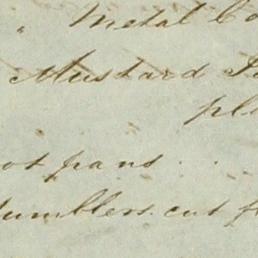 " Metal Co
Mustard
pl
ot pans . .
Tumblers cut f